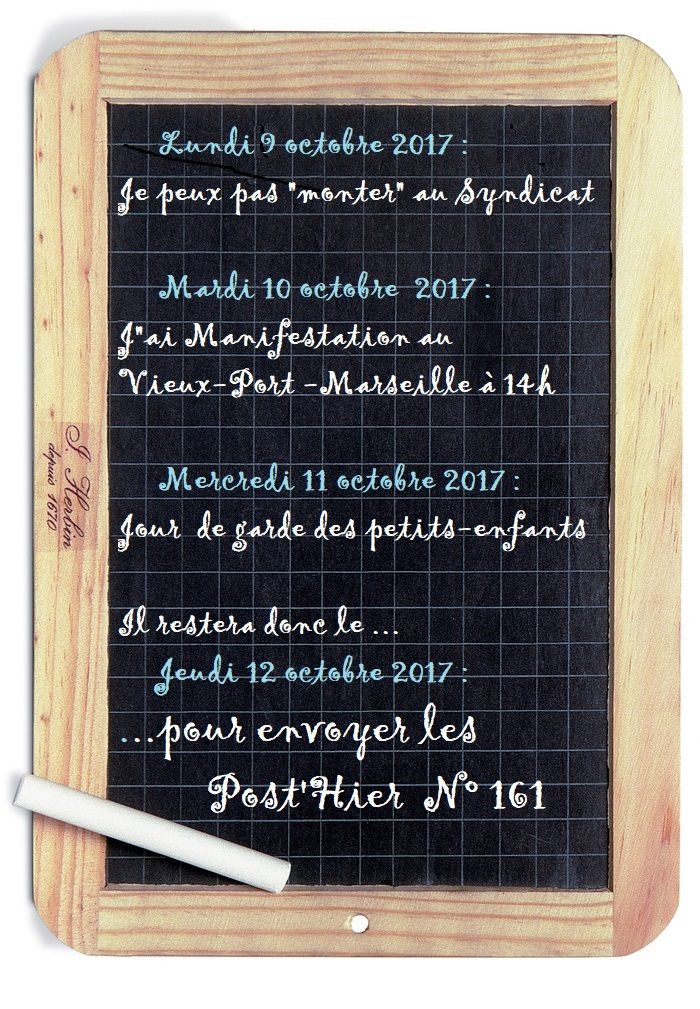 Lundi 9 octobre 2017 :
Je peux pas "monter" au Syndicat
Mardi 10 octobre 2017 :
J"ai Manifestation au
Vieux-Port -Marseille à 14h
Mercredi 11 octobre 2017 :
Jour de garde des petits-enfants
Il restera donc le ...
Jeudi 12 octobre 2017 :
...pour envoyer les
Post'Hier N° 161
J. Herbin
depuis 1670